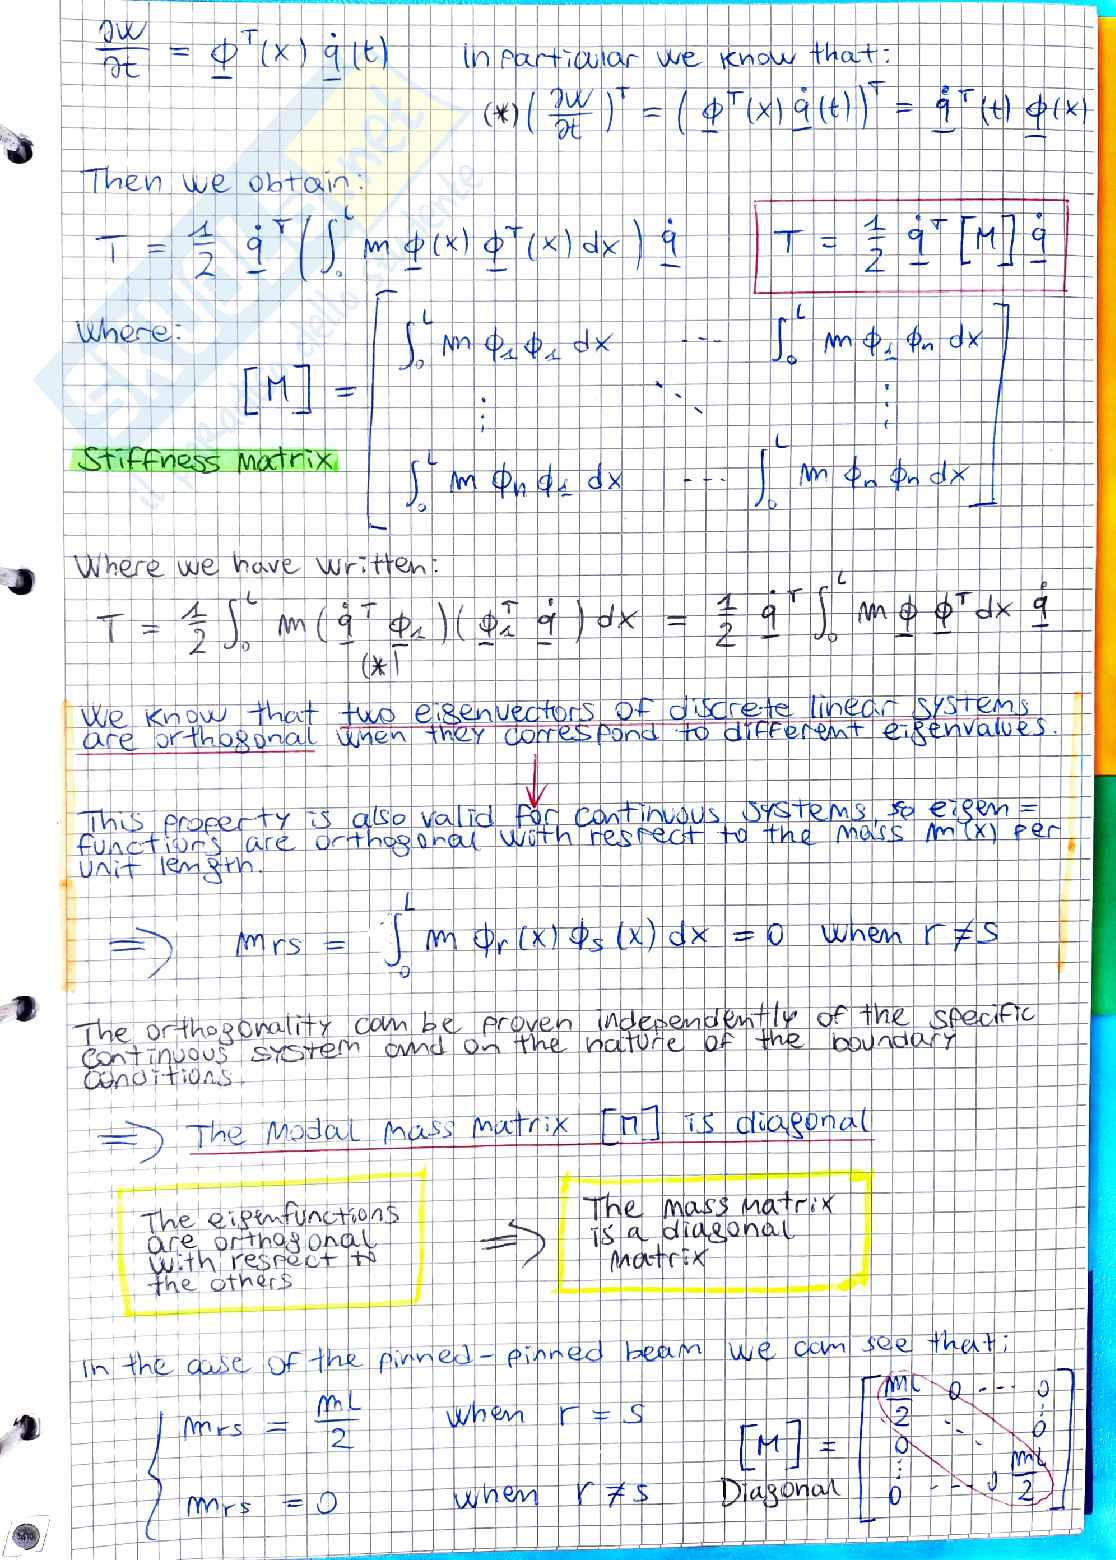 ∂w/∂t = ϕ^T(x) q̇(t) In particular we know that:
(*) (∂w/∂t)^T = (ϕ^T(x) q̇(t))^T = q̇^T(t) ϕ(x)
Then we obtain:
T = 1/2 q̇^T (∫₀^L m ϕ(x) ϕ^T(x) dx) q̇ T = 1/2 q̇^T [M] q̇
Where:
∫₀^L m ϕ₁ ϕ₁ dx --- ∫₀^L m ϕ₁ ϕn dx
[M] = ⋮ ⋱ ⋮
Stiffness Matrix
∫₀^L m ϕn ϕ₁ dx --- ∫₀^L m ϕn ϕn dx
Where we have written:
T = 1/2 ∫₀^L m (q̇^T ϕ₁)(ϕ₁^T q̇) dx = 1/2 q̇^T ∫₀^L m ϕ ϕ^T dx q̇
(*)
We know that two eigenvectors of discrete linear systems
are orthogonal when they correspond to different eigenvalues.
This property is also valid for continuous systems, so eigen=
functions are orthogonal with respect to the mass m(x) per
unit length.
⟹ mrs = ∫₀^L m ϕr(x) ϕs(x) dx = 0 when r ≠ s
The orthogonality can be proven independently of the specific
continuous system and on the nature of the boundary
conditions.
⟹ The Modal mass matrix [M] is diagonal
The eigenfunctions
are orthogonal
with respect to
the others
⟹
The mass matrix
is a diagonal
matrix
In the case of the pinned-pinned beam we can see that:
mrs = mL/2 when r = s
mrs = 0 when r ≠ s
[M] =
Diagonal
mL/2 0 --- 0
⋮
0
0
⋮
0 --- 0 mL/2
SKUOLA.net
il paradiso dello studente